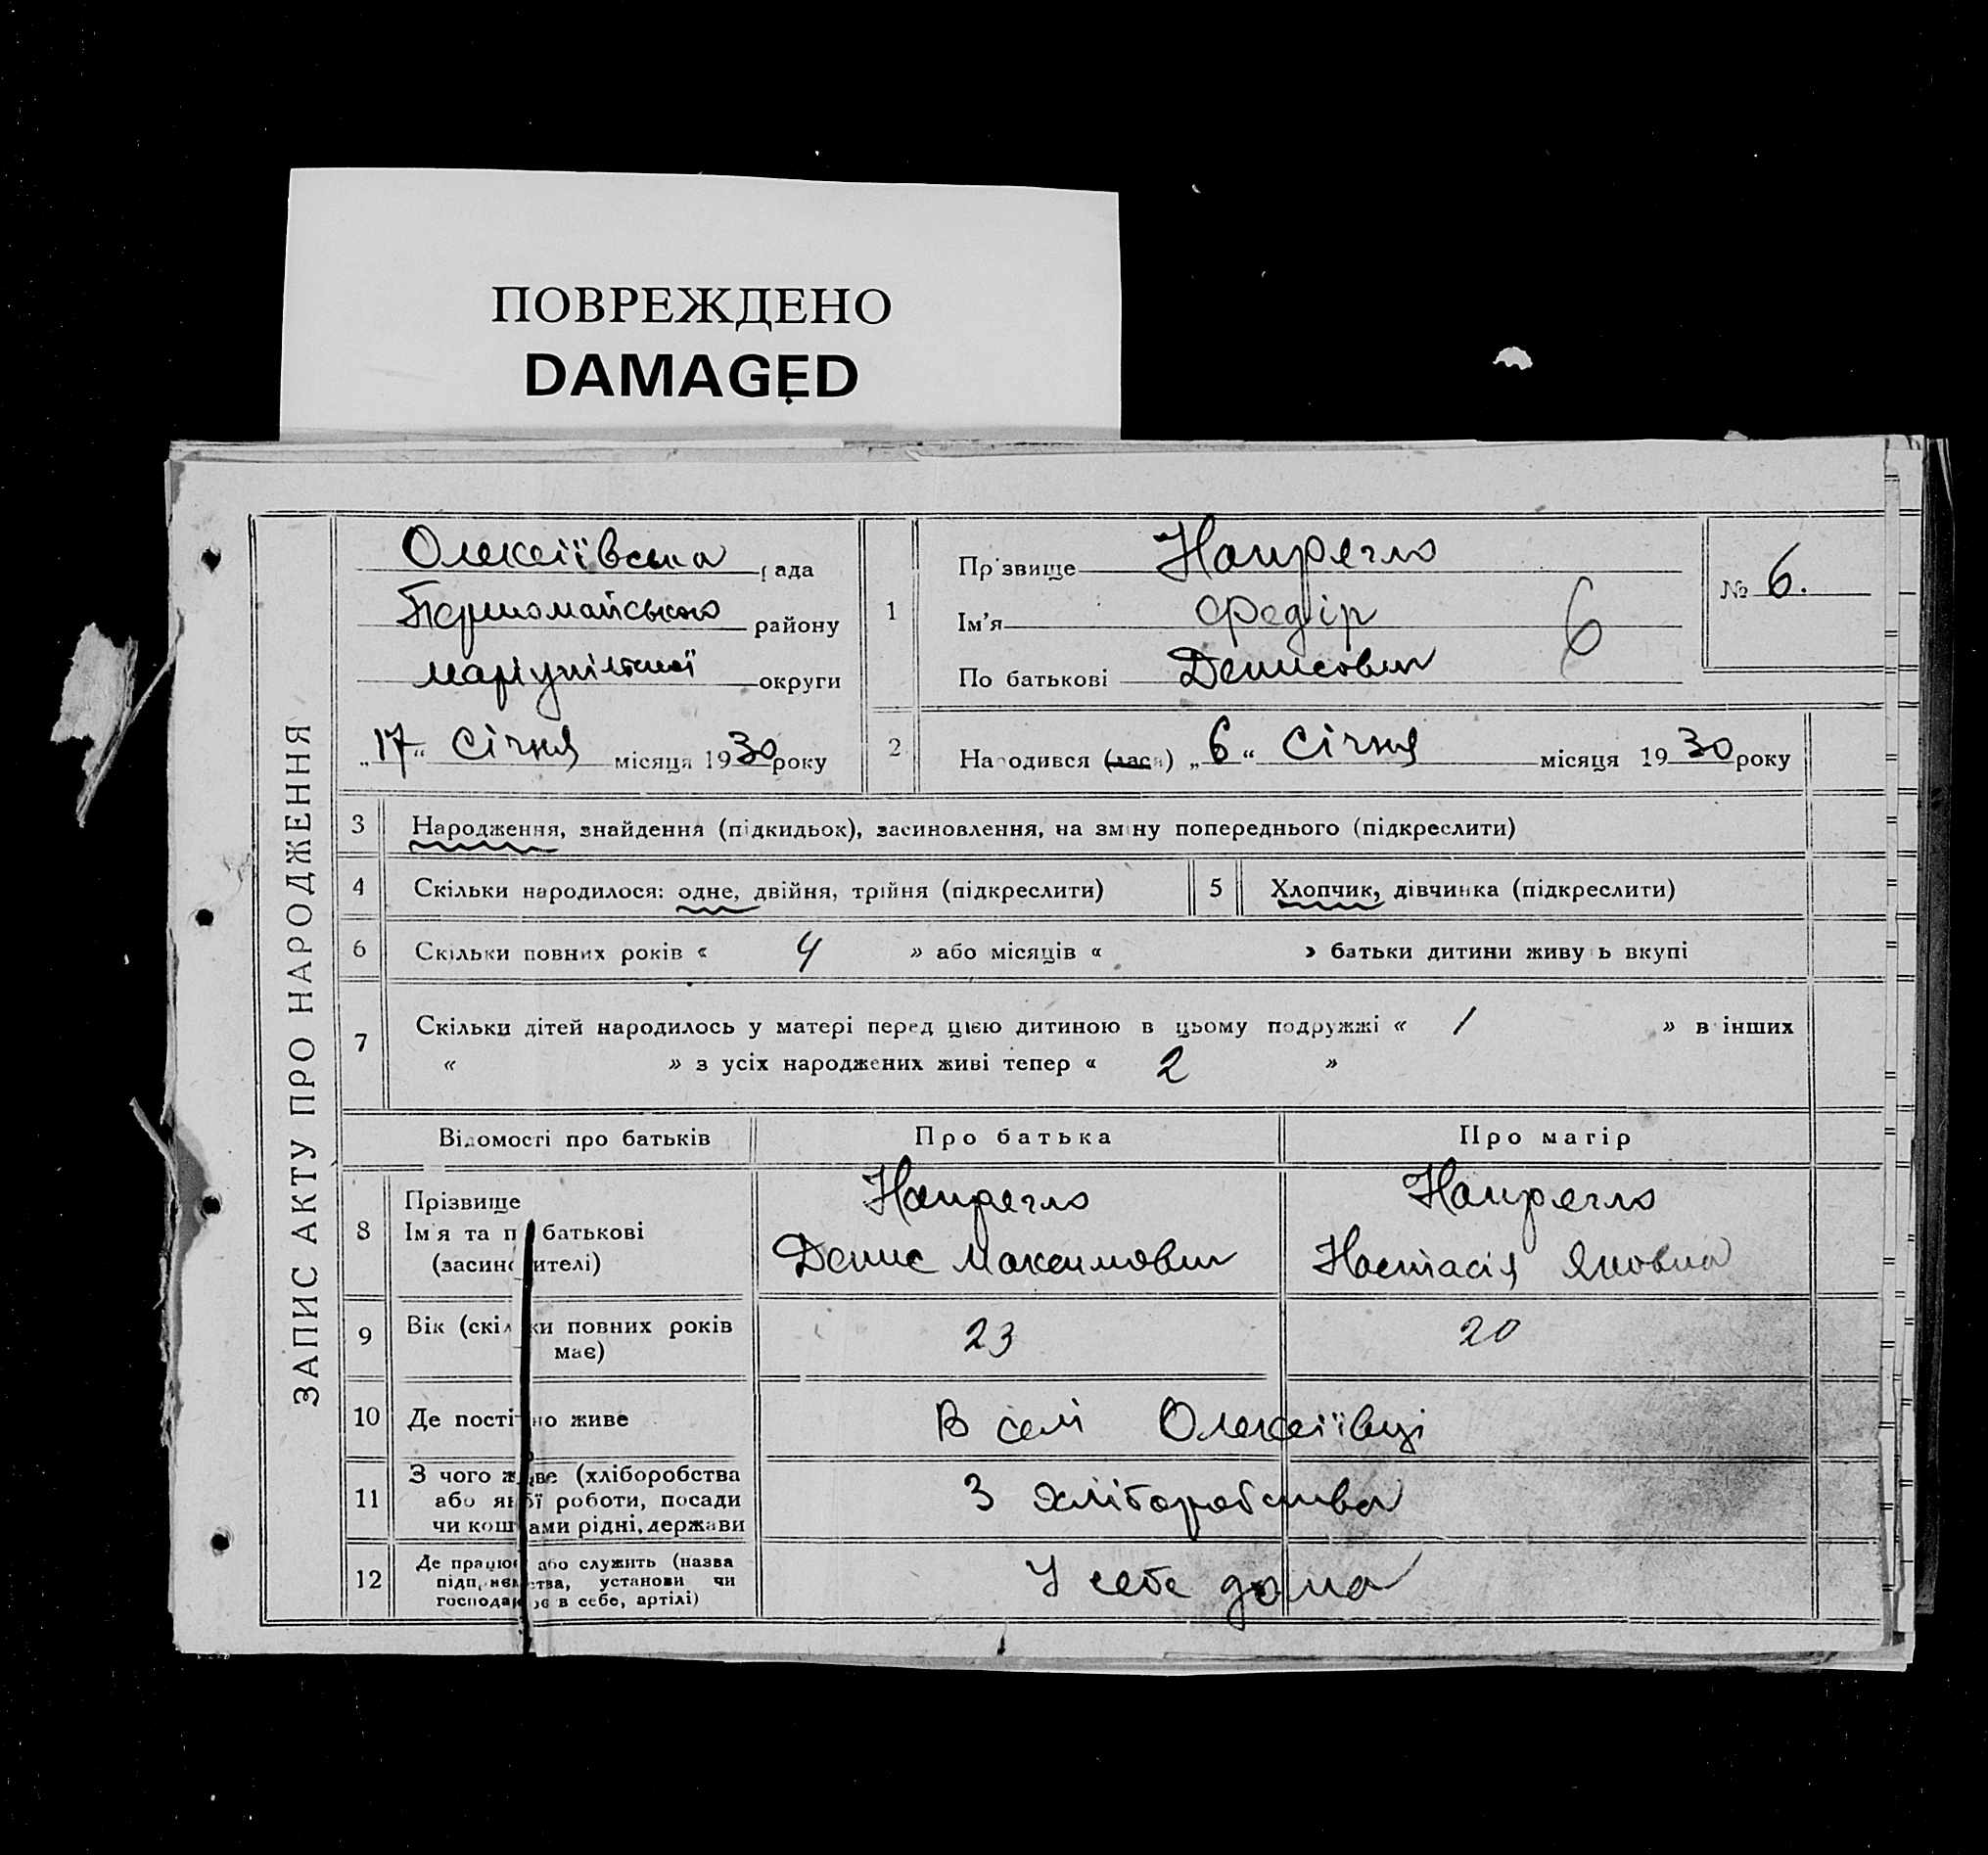 ПОВРЕЖДЕНО
DAMAGED
ЗАПИС АКТУ ПРО НАРОДЖЕННЯ
Олексіївська рада
Першомайського району
маріупільської округи
„17“ Січня місяця 1930 року
1
Прізвище Напрягло
Ім'я Федір
По батькові Денисович
6
№ 6.
2
Народився (лася) „6“ Січня місяця 1930 року
3 Народження, знайдення (підкидьок), засиновлення, на зміну попереднього (підкреслити)
4 Скільки народилося: одне, двійня, трійня (підкреслити)
5 Хлопчик, дівчинка (підкреслити)
6 Скільки повних років « 4 » або місяців « » батьки дитини живуть вкупі
7 Скільки дітей народилось у матері перед цією дитиною в цьому подружжі « 1 » в інших
« » з усіх народжених живі тепер « 2 »
Відомості про батьків Про батька Про матір
8 Прізвище Напрягло Напрягло
Ім'я та по батькові Денис Максимович Настасія Яковна
(засиновителі)
9 Вік (скільки повних років має) 23 20
10 Де постійно живе В селі Олексіївці
11 З чого живе (хліборобства
або якої роботи, посади З хліборобства
чи коштами рідні, держави
12 Де працює або служить (назва
підприємства, установи чи У себе дома
господарює в себе, артілі)